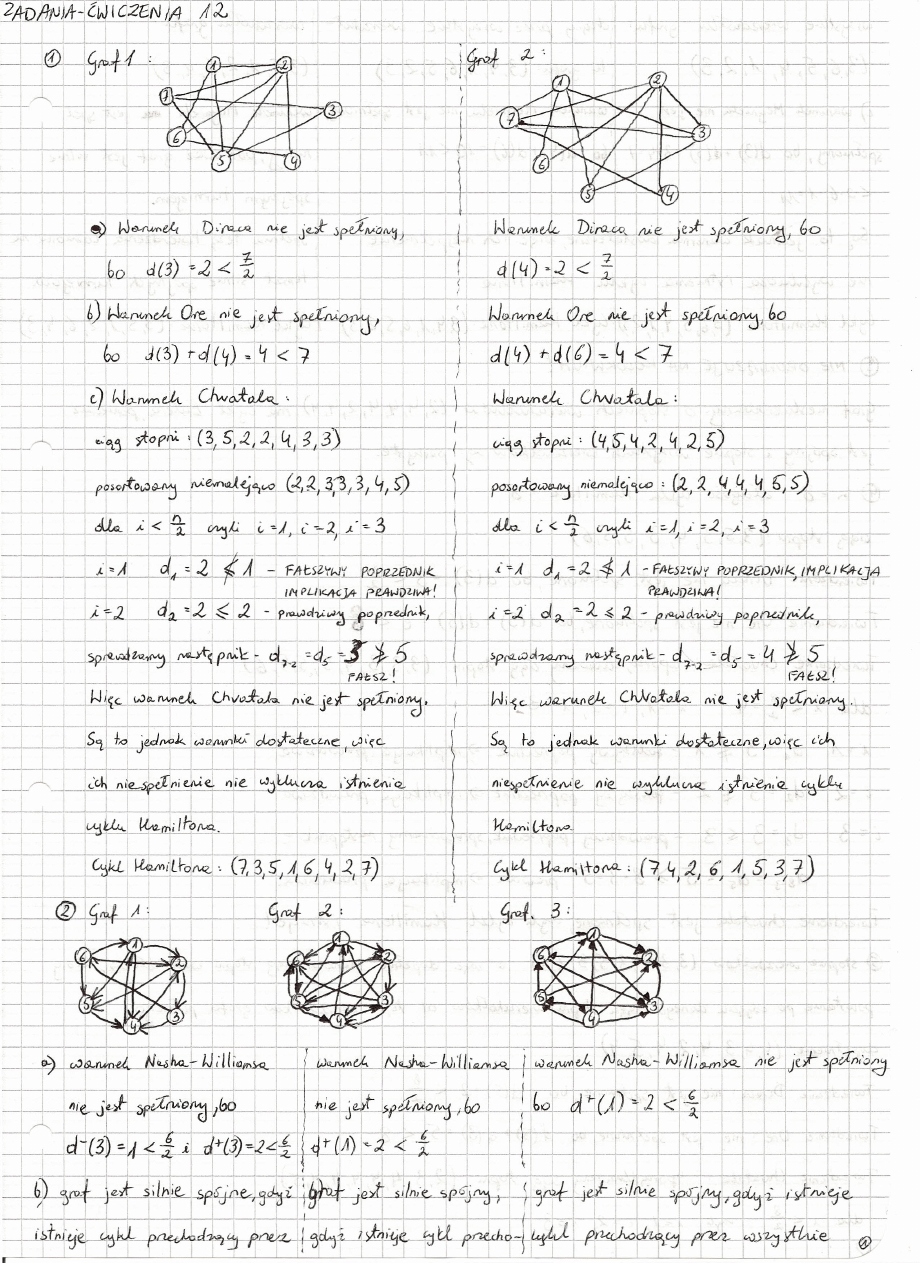 ZADANIA-ĆWICZENIA 12
① Graf 1:
1 2
7 3
6 5 4
a) Warunek Diraca nie jest spełniony,
bo d(3) = 2 < 7/2
b) Warunek Ore nie jest spełniony,
bo d(3) + d(4) = 4 < 7
c) Warunek Chvatala:
ciąg stopni: (3, 5, 2, 2, 4, 3, 3)
posortowany niemalejąco (2, 2, 3, 3, 3, 4, 5)
dla i < n/2 czyli i=1, i=2, i=3
i=1 d₁ = 2 ≰ 1 - FAŁSZYWY POPRZEDNIK
IMPLIKACJA PRAWDZIWA!
i=2 d₂ = 2 ≤ 2 - prawdziwy poprzednik,
sprawdzamy następnik - d₇₋₂ = d₅ = 3 ≱ 5
FAŁSZ!
Więc warunek Chvatala nie jest spełniony.
Są to jednak warunki dostateczne, więc
ich niespełnienie nie wyklucza istnienia
cyklu Hamiltona.
Cykl Hamiltona: (7, 3, 5, 1, 6, 4, 2, 7)
Graf 2:
1 2
7 3
6 5 4
Warunek Diraca nie jest spełniony, bo
d(4) = 2 < 7/2
Warunek Ore nie jest spełniony, bo
d(4) + d(6) = 4 < 7
Warunek Chvatala:
ciąg stopni: (4, 5, 4, 2, 4, 2, 5)
posortowany niemalejąco: (2, 2, 4, 4, 4, 5, 5)
dla i < n/2 czyli i=1, i=2, i=3
i=1 d₁ = 2 ≰ 1 - FAŁSZYWY POPRZEDNIK, IMPLIKACJA
PRAWDZIWA!
i=2 d₂ = 2 ≤ 2 - prawdziwy poprzednik,
sprawdzamy następnik - d₇₋₂ = d₅ = 4 ≱ 5
FAŁSZ!
Więc warunek Chvatala nie jest spełniony.
Są to jednak warunki dostateczne, więc ich
niespełnienie nie wyklucza istnienia cyklu
Hamiltona
Cykl Hamiltona: (7, 4, 2, 6, 1, 5, 3, 7)
② Graf 1:
1
6 2
5 3
4
a) warunek Nasha-Williamsa
nie jest spełniony, bo
d⁻(3) = 1 < 6/2 i d⁺(3) = 2 < 6/2
b) graf jest silnie spójne, gdyż
istnieje cykl przechodzący przez
Graf 2:
1
6 2
5 3
4
warunek Nasha-Williamsa
nie jest spełniony, bo
d⁺(1) = 2 < 6/2
b) graf jest silnie spójny,
gdyż istnieje cykl przecho-
Graf. 3:
1
6 2
5 3
4
warunek Nasha-Williamsa nie jest spełniony
bo d⁺(1) = 2 < 6/2
graf jest silnie spójny, gdyż istnieje
cykl przechodzący przez wszystkie
①